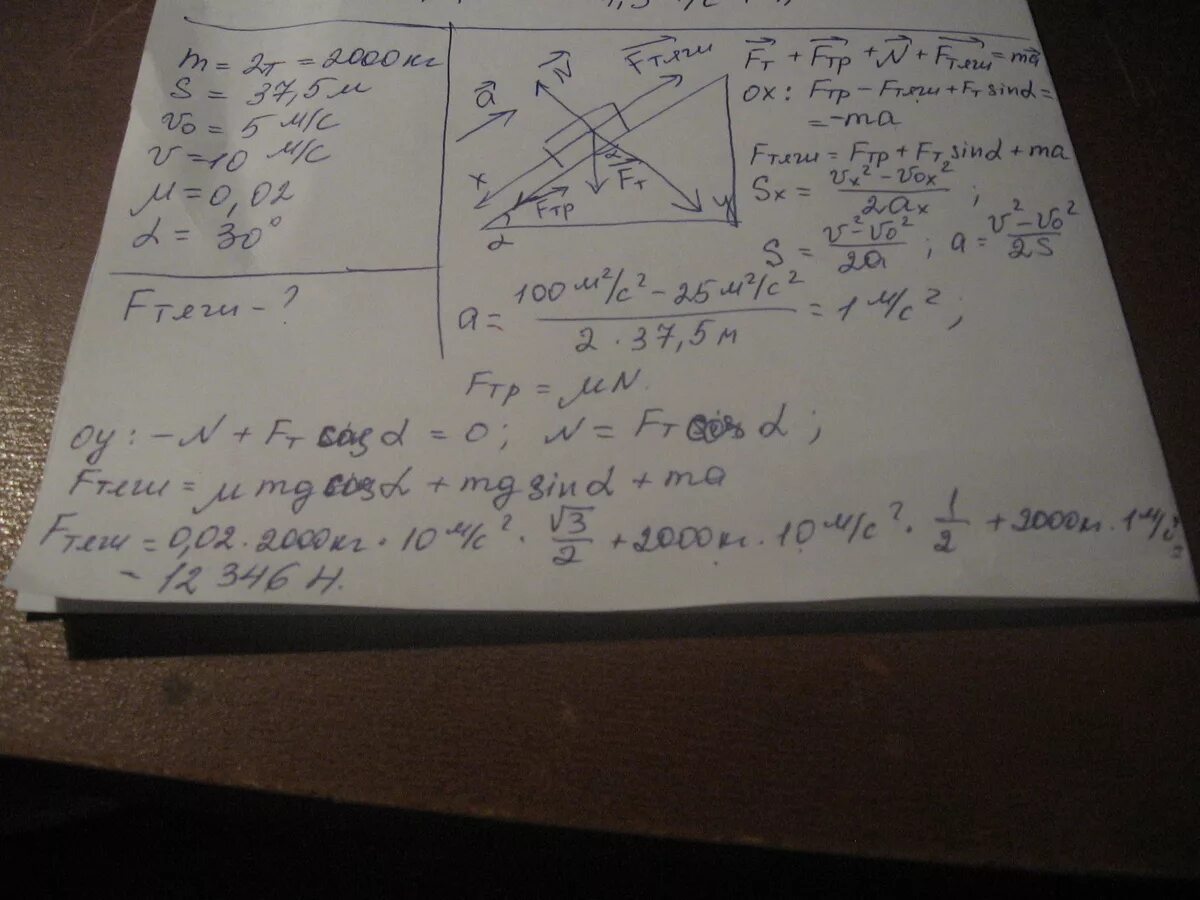 m = 2т = 2000 кг
S = 37,5 м
v₀ = 5 м/с
v = 10 м/с
μ = 0,02
α = 30°
Fтяги - ?
a⃗
N⃗
F⃗тяги
x
Fтр
F⃗т
α
y
α
F⃗т + F⃗тр + N⃗ + F⃗тяги = ma⃗
ОX: Fтр - Fтяги + Fт sinα =
= -ma
Fтяги = Fтр + Fт sinα + ma
Sx = (vx² - v0x²) / 2ax ;
S = (v² - v₀²) / 2a ; a = (v² - v₀²) / 2S
a = (100 м²/с² - 25 м²/с²) / (2 · 37,5 м) = 1 м/с² ;
Fтр = μN.
Оy: -N + Fт cos α = 0; N = Fт cos α ;
Fтяги = μ mg cos α + mg sin α + ma
Fтяги = 0,02 · 2000 кг · 10 м/с² · √3/2 + 2000 кг · 10 м/с² · 1/2 + 2000 кг · 1 м/с² =
- 12 346 Н.